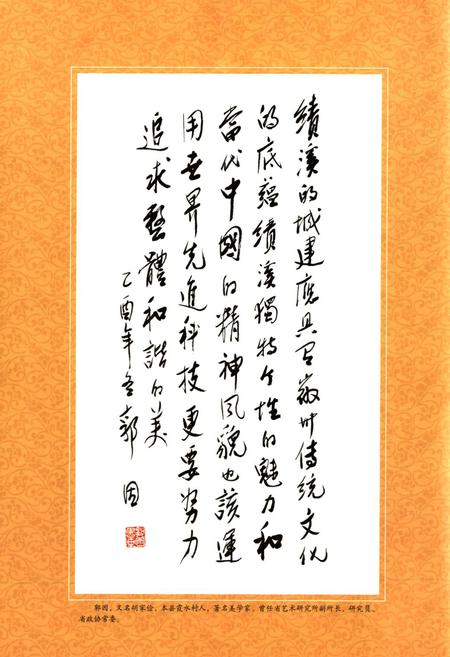 绩溪的城建應具有徽州傳统文化
的底蕴绩溪獨特个性的魅力和
當代中國的精神風貌也該運
用世界先進科技更要努力
追求整體和諧的美
乙酉年冬郭因
郭因，又名胡家俭，本县霞水村人，著名美学家，曾任省艺术研究所副所长、研究员、
省政协常委。